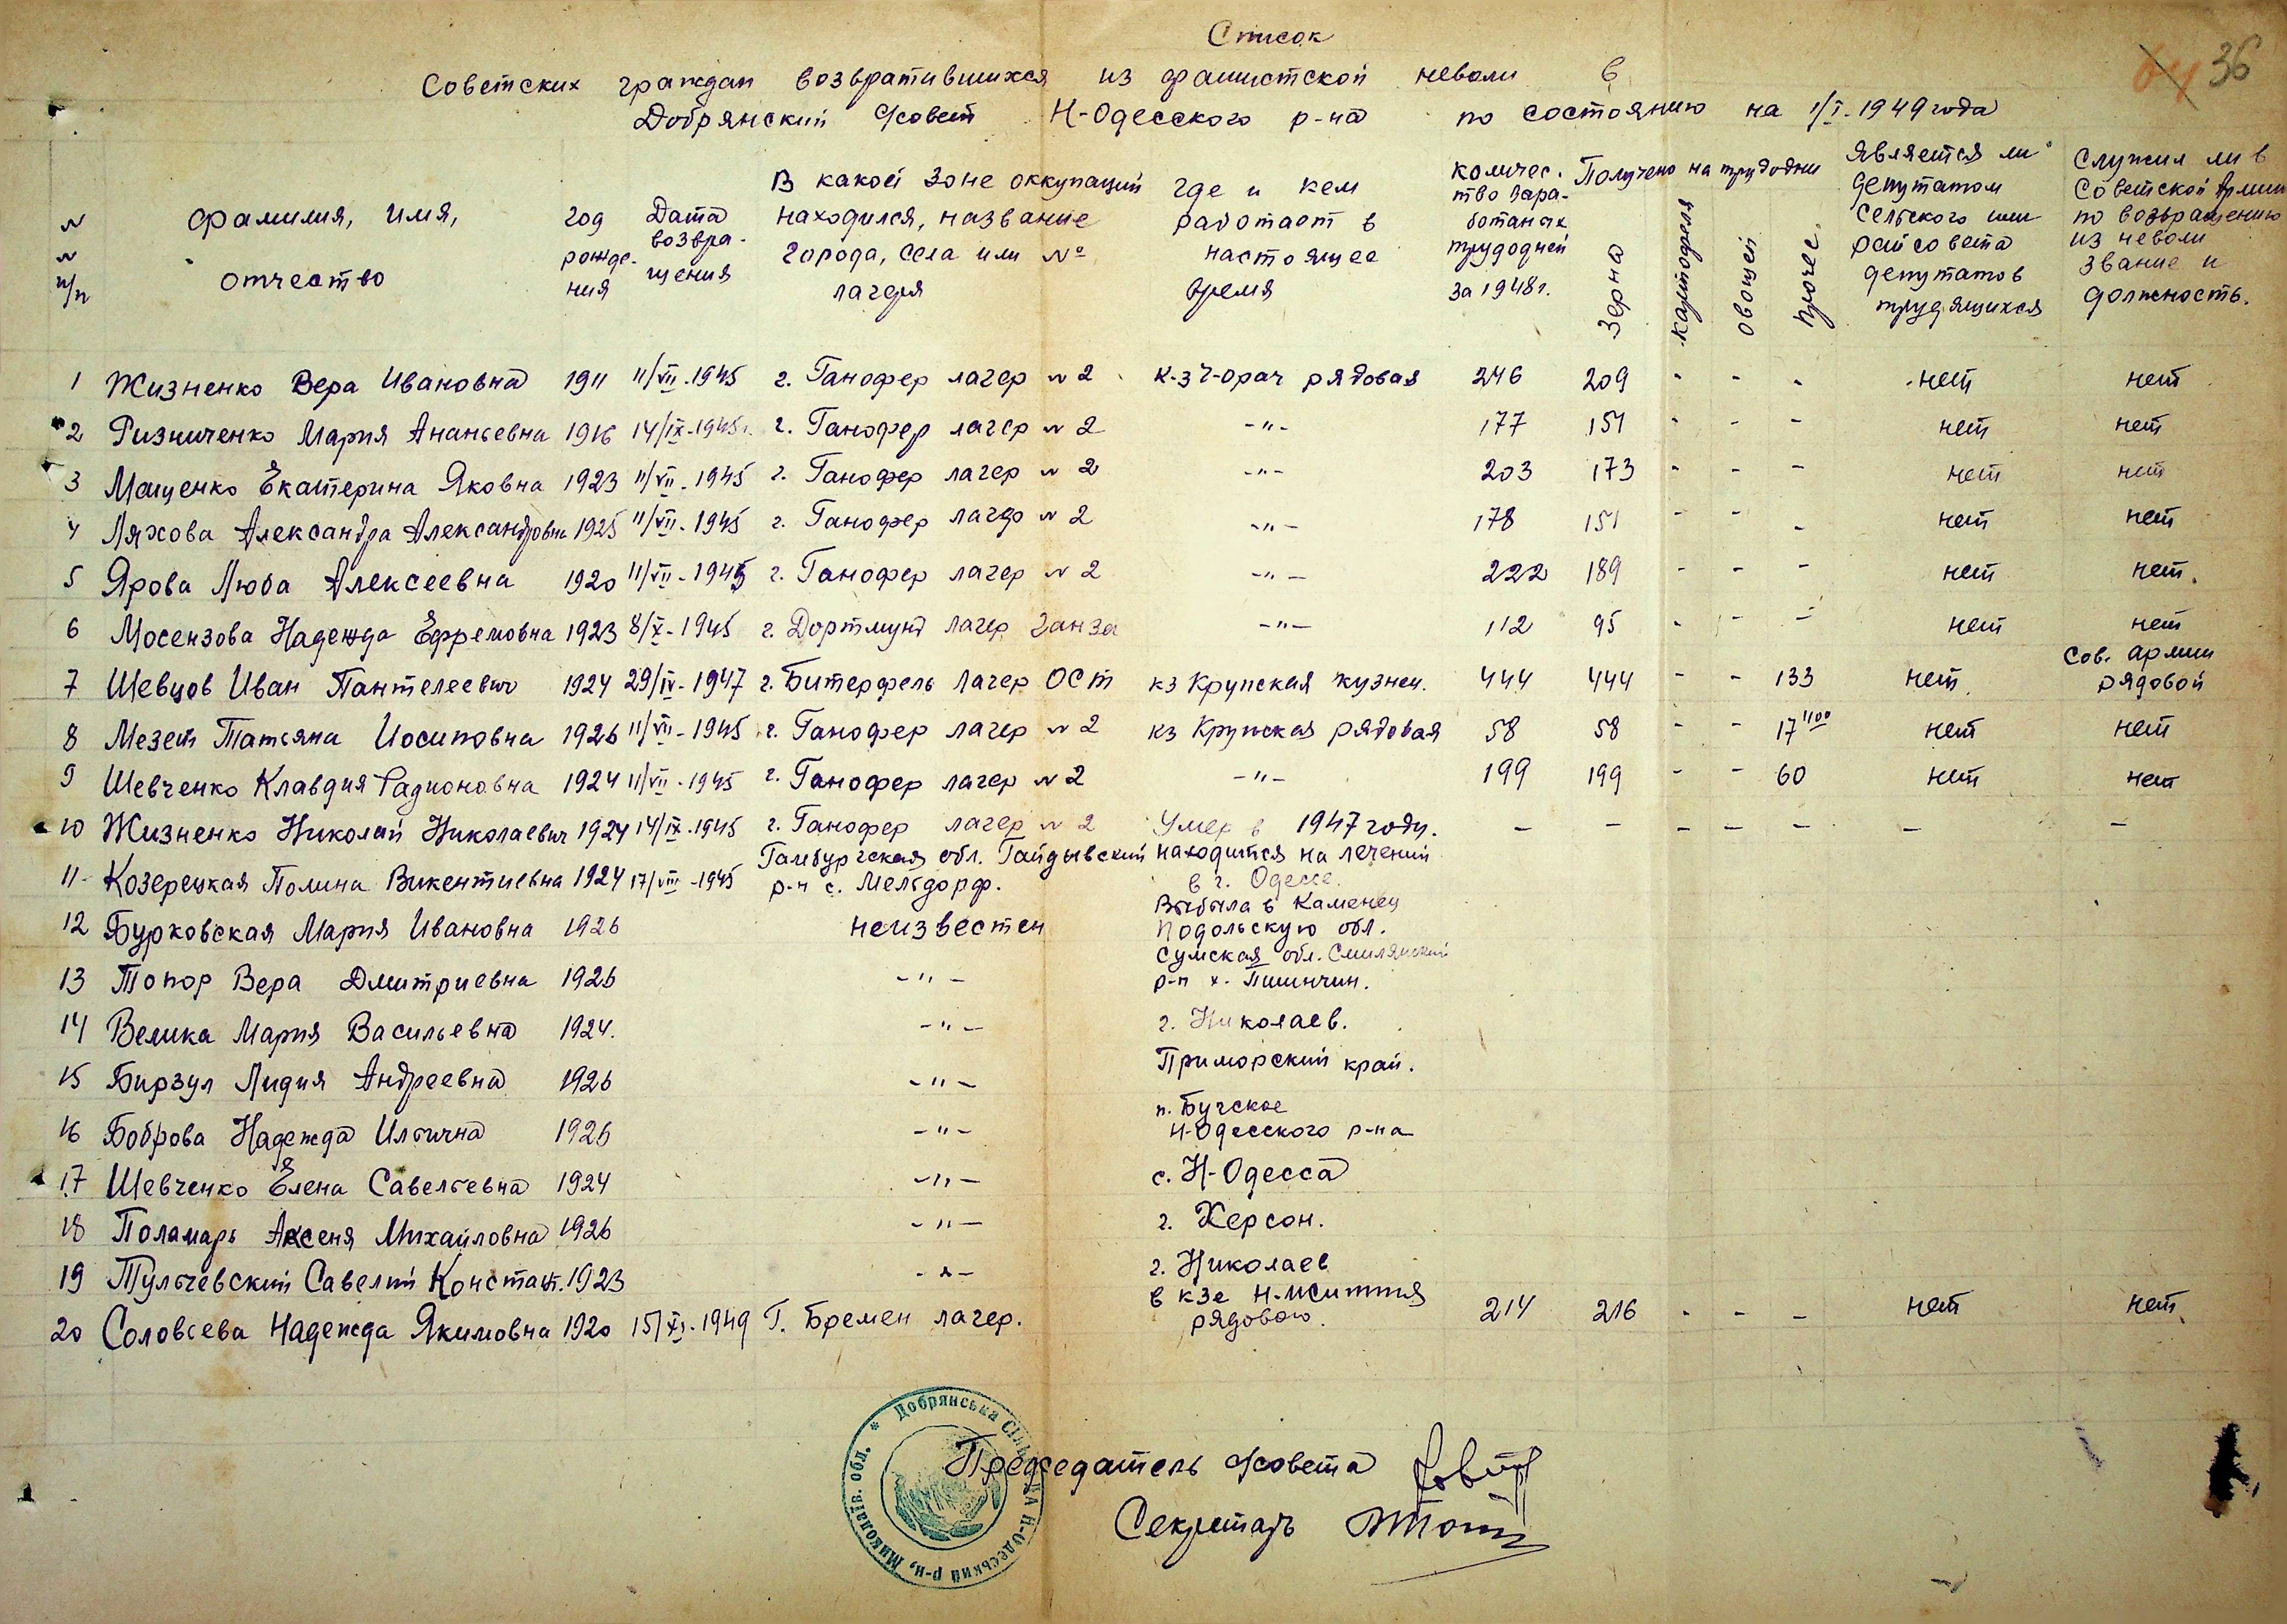 Список
64 36
Советских граждан возвратившихся из фашистской неволи в
Добрянский с/совет Н-Одесского р-на по состоянию на 1/I-1949 года
N N п/п
Фамилия, имя, отчество
год рожде-ния
Дата возвра-щения
В какой зоне оккупаций находился, название города, села или № лагеря
где и кем работает в настоящее время
Количес-тво зара-ботаных трудодней за 1948 г.
Получено на трудодни
Зерна
Картофеля
Овощей
Прочее.
Является ли депутатом сельского или райсовета депутатов трудящихся
Служил ли в Советской Армии по возвращению из неволи звание и должность.
1 Жизненко Вера Ивановна 1911 11/VII-1945 г. Ганофер лагер N 2 к-з Ч-орач рядовая 246 209 - - - нет нет
2 Ризниченко Мария Ананьевна 1916 14/IX-1945г. г. Ганофер лагер N 2 -"- 177 151 - - - нет нет
3 Маценко Екатерина Яковна 1923 11/VII-1945 г. Ганофер лагер N 2 -"- 203 173 - - - нет нет
4 Ляхова Александра Александровна 1925 11/VII-1945 г. Ганофер лагер N 2 -"- 178 151 - - - нет нет
5 Ярова Люба Алексеевна 1920 11/VII-1945 г. Ганофер лагер N 2 -"- 222 189 - - - нет нет.
6 Мосензова Надежда Ефремовна 1923 8/X-1945 г. Дортмунд лагер Ганза -"- 112 95 - - - нет нет
7 Шевцов Иван Пантелеевич 1924 29/IV-1947 г. Битерфель лагер ОСТ кз Крупская кузнец. 444 444 - - 133 нет. Сов. армии рядовой
8 Мезет Татьяна Иосиповна 1926 11/VII-1945 г. Ганофер лагер N 2 кз Крупская рядовая 58 58 - - 17 1100 нет нет
9 Шевченко Клавдия Радионовна 1924 11/VII-1945 г. Ганофер лагер N 2 -"- 199 199 - - 60 нет нет
10 Жизненко Николай Николаевич 1924 14/IX-1945 г. Ганофер лагер N 2 Умер в 1947 году. - - - - - - -
11 Козерецкая Полина Викентиевна 1924 17/VIII-1945 Гамбургская обл. Гайдывский р-н с. Мельдорф. находится на лечении в г. Одессе.
12 Бурковская Мария Ивановна 1926 неизвестен Выбыла в Каменец Подольскую обл.
13 Топор Вера Дмитриевна 1926 -"- Сумская обл. Смилянский р-н х. Пшинчин.
14 Велика Мария Васильевна 1924. -"- г. Николаев.
15 Бирзул Лидия Андреевна 1926 -"- Приморский край.
16 Боброва Надежда Ильична 1926 -"- п. Бугское Н-Одесского р-на
17 Шевченко Елена Савельевна 1924 -"- с. Н-Одесса
18 Поламарь Аксеня Михайловна 1926 -"- г. Херсон.
19 Тульчевский Савелий Констант. 1923 -"- г. Николаев
20 Соловьева Надежда Якимовна 1920 15/XI-1949 Г. Бремен лагер. в кзе Н-життя рядовою. 214 216 - - - нет нет.
* Добрянська Сільська Н-Одеський р-н, Миколаїв. обл.
Председатель с/совета
Секретарь